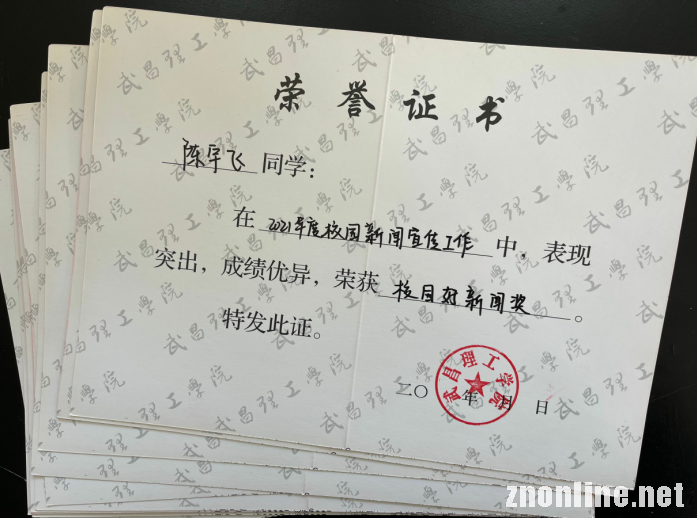 荣誉证书
陈宇飞 同学:
在 2021年度校园新闻宣传工作 中，表现
突出，成绩优异，荣获 校园好新闻奖 。
特发此证。
武昌理工学院
二〇 年 月 日
znonline.net